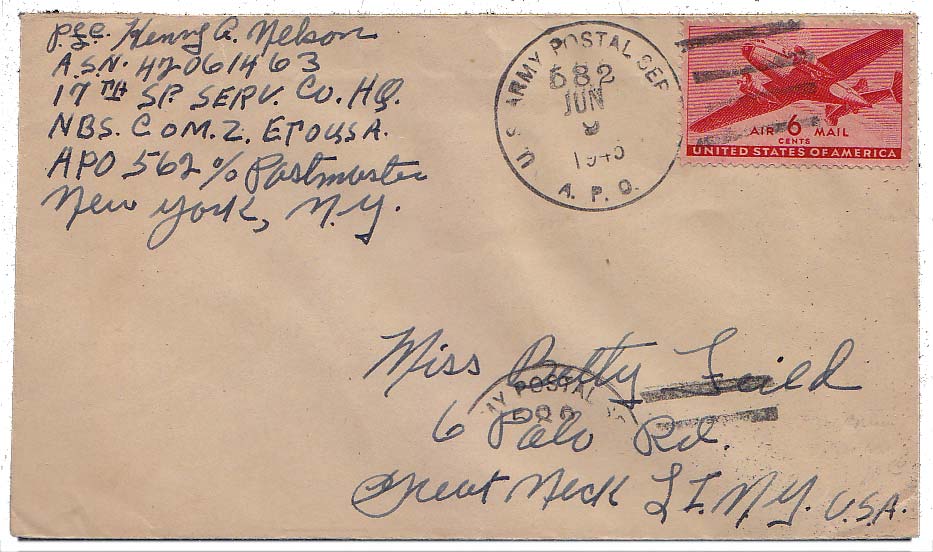 Pfc. Henry A. Nelson
A.S.N. 42061463
17TH SP. SERV. CO. HQ.
NBS. COM. Z. ETOUSA
APO 562 % Postmaster
New York, N.Y.
U.S. ARMY POSTAL SER
582
JUN
9
1945
A. P. O.
AIR 6 MAIL
CENTS
UNITED STATES OF AMERICA
Miss Betty
MY POSTAL
6 Polo Rd.
Great Neck L I. N.Y. U.S.A.